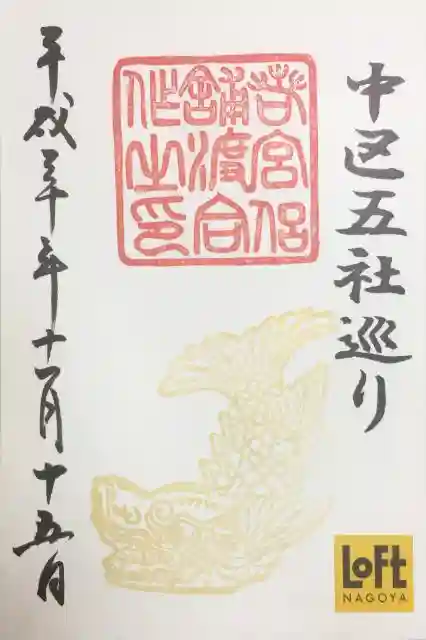 中区五社巡り
平成三十年十一月十五日
LoFt
NAGOYA